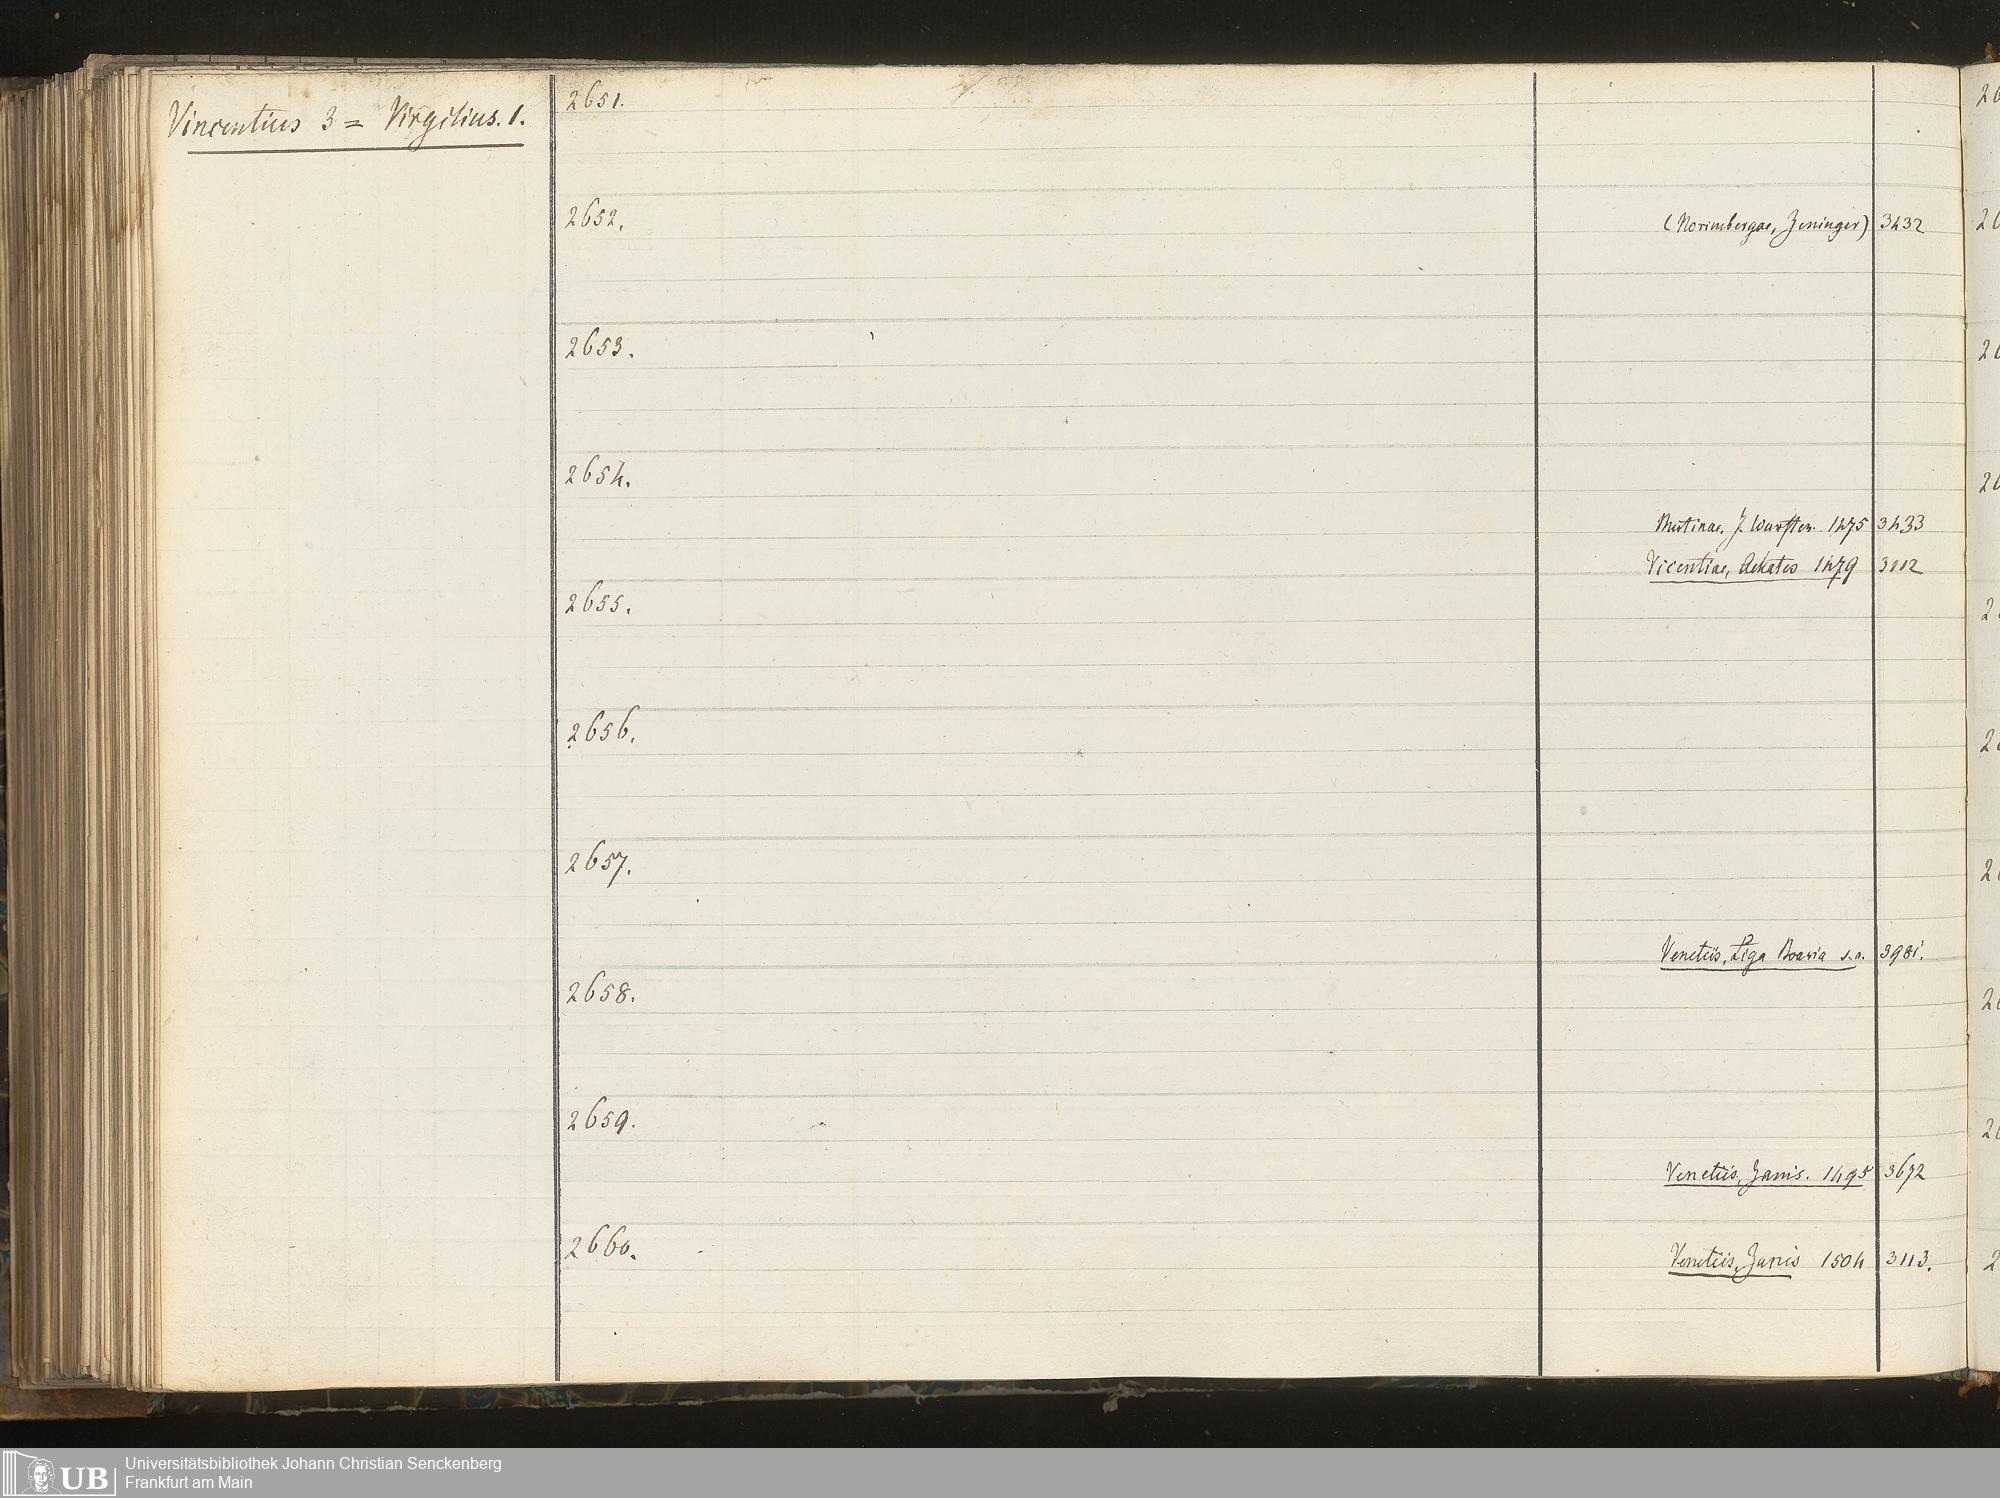 Vincentius 3 = Virgilius. 1.
2651.
2652.
(Norimbergae, Zeninger) 3432
2653.
2654.
Mutinae, J. Wurster. 1475 3433
Vicentiae, Achates 1479 3112
2655.
2656.
2657.
Venetiis, Liga Boaria s. a. 3981.
2658.
2659.
Venetiis, Zanis. 1495 3672
2660.
Venetiis, Zanis 1504 3113.
Universitätsbibliothek Johann Christian Senckenberg
Frankfurt am Main
UB